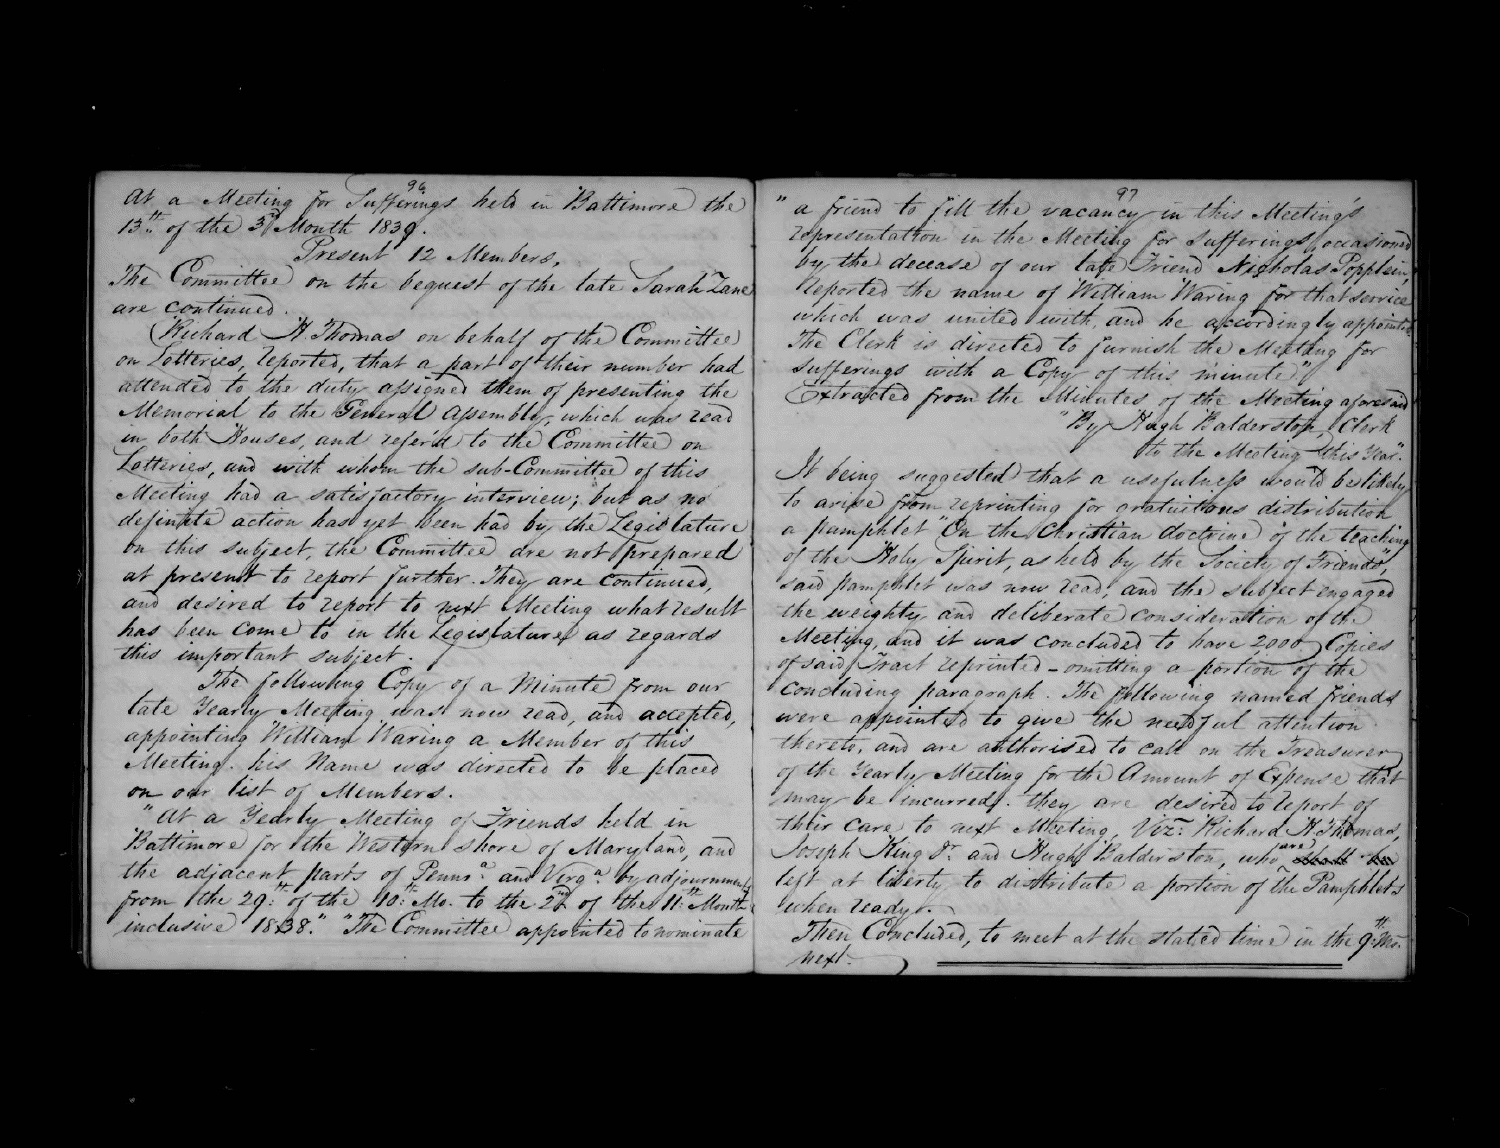 96
At a Meeting for Sufferings held in Baltimore the
13th of the 3rd Month 1839.
Present 12 Members.
The Committee on the bequest of the late Sarah Zane
are continued.
Richard H. Thomas on behalf of the Committee
on Lotteries, reported, that a part of their number had
attended to the duty assigned them of presenting the
Memorial to the General Assembly, which was read
in both Houses, and refer'd to the Committee on
Lotteries, and with whom the sub-Committee of this
Meeting had a satisfactory interview; but as no
definite action has yet been had by the Legislature
on this subject, the Committee are not prepared
at present to report further. They are continued,
and desired to report to next Meeting what result
has been come to in the Legislature as regards
this important subject.
The following Copy of a Minute from our
late Yearly Meeting was now read, and accepted,
appointing William Waring a Member of this
Meeting. his Name was directed to be placed
on our list of Members.
"At a Yearly Meeting of Friends held in
Baltimore for the Western shore of Maryland, and
the adjacent parts of Penns.a and Virg.a by adjournments
from the 29th of the 10th Mo. to the 2nd of the 11th Month
inclusive 1838." "The Committee appointed to nominate
97
" a friend to fill the vacancy in this Meeting's
representation in the Meeting for Sufferings, occasioned
by the decease of our late Friend Nicholas Popplein,
reported the name of William Waring for that service
which was united with, and he accordingly appointed.
The Clerk is directed to furnish the Meeting for
sufferings with a Copy of this minute"
Extracted from the Minutes of the Meeting aforesaid
" By Hugh Balderston, Clerk
to the Meeting this Year."
It being suggested that a usefulness would be likely
to arise from reprinting for gratuitous distribution
a pamphlet "On the Christian doctrine of the teaching
of the Holy Spirit, as held by the Society of Friends",
said pamphlet was now read, and the subject engaged
the weighty and deliberate consideration of the
Meeting, and it was concluded to have 2,000 Copies
of said Tract reprinted - omitting a portion of the
concluding paragraph. The following named friends
were appointed to give the needful attention
thereto, and are authorised to call on the Treasurer
of the Yearly Meeting for the Amount of Expense that
may be incurred. they are desired to report of
their care to next Meeting, Viz: Richard H. Thomas,
Joseph King Jr. and Hugh Balderston, who are
left at liberty to distribute a portion of the Pamphlets
when ready.
Then Concluded, to meet at the stated time in the 9th Mo.
next.